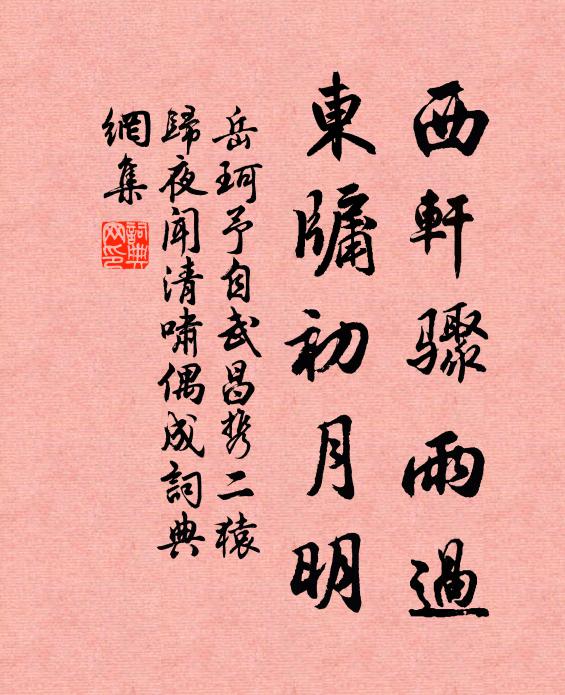 西軒驟雨過
東牖初月明
岳珂予自武昌携二猿
歸夜聞清嘯偶成詞典
網集
詞典網印